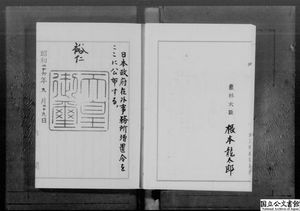 日本政府在外事務所増置令を
ここに公布する。
裕仁
天皇
御璽
昭和二十五年九月二十九日
農林大臣
根本龍太郎
国立公文書館
National Archives of Japan